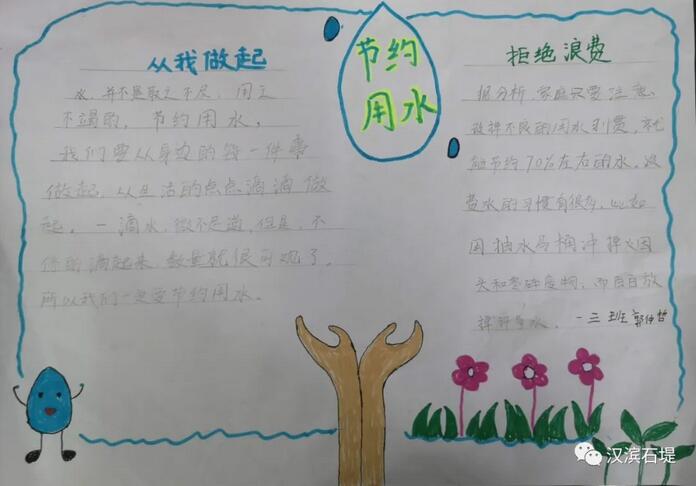 节约
用水
从我做起
水,并不是取之不尽,用之
不竭的,节约用水,
我们要从身边的每一件事
做起,从生活的点点滴滴做
起。一滴水,微不足道,但是,不
停的滴起来,数量就很可观了。
所以我们一定要节约用水。
拒绝浪费
据分析,家庭只要注意
改掉不良的用水习费,就
能节约70%左右的水,浪
费水的习惯有很多,比如
因抽水马桶冲掉
头和零碎废物,
一三班
汉滨石堤